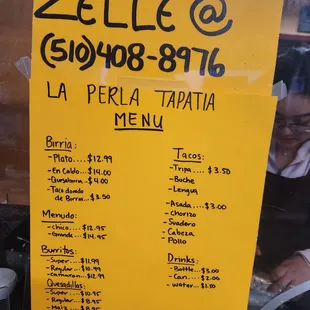 ZELLE @
(510)408-8976
LA PERLA TAPATIA
MENU
Birria:
- Plato.... $12.99
- En Caldo... $14.00
- Quesabirria.. $4.00
- Taco dorado
de Birria.. $3.50
Menudo:
- chico.... $12.95
- Grande.... $14.95
Burritos:
- Super.... $11.99
- Regular.. $10.99
- Camaron... $12.99
Quesadillas:
- Super.... $10.95
- Regular.. $8.95
- Maiz.... $8.95
Tacos:
- Tripa.... $3.50
- Buche
- Lengua
- Asada.... $3.00
- Chorizo
- Suadero
- Cabeza
- Pollo
Drinks:
- Bottle.. $3.00
- Can... $2.00
- Water.. $1.50